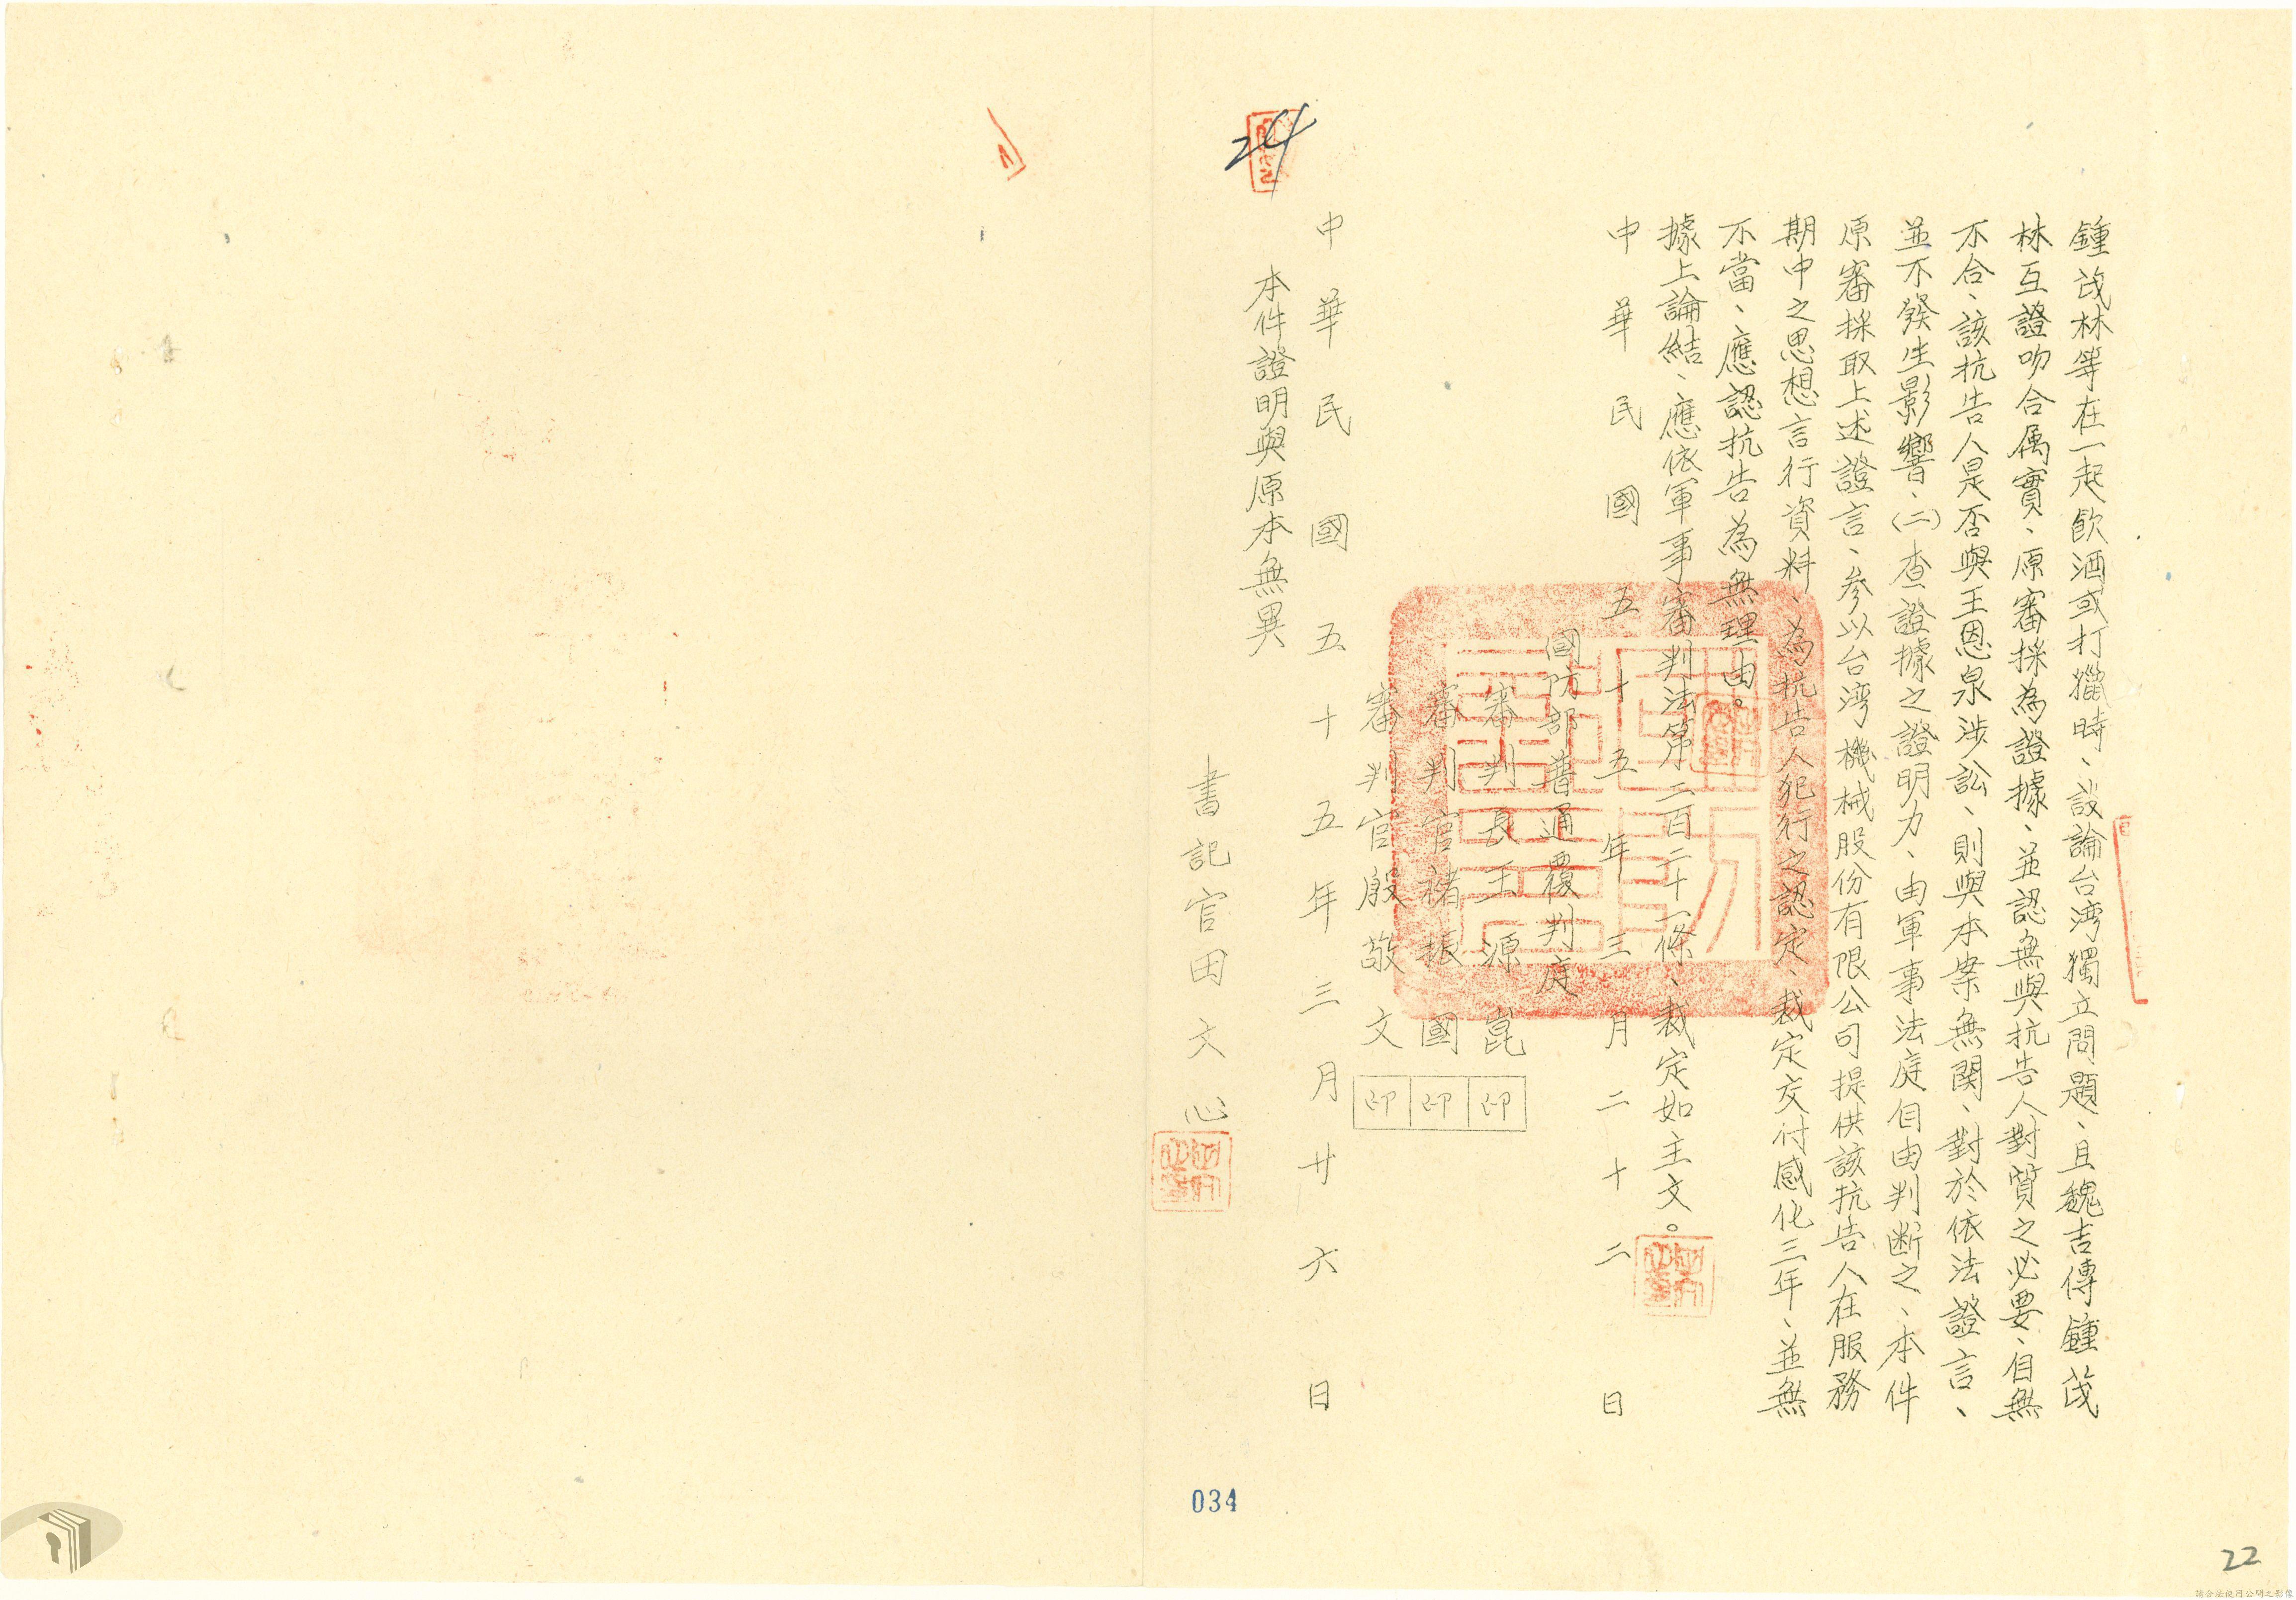 鍾茂林等在一起飲酒或打獵時、談論台湾獨立問題、且魏吉傳鍾茂
林互證吻合属實、原審採為證據、並認無與抗告人對質之必要、自無
不合、該抗告人是否與王恩泉涉訟、則與本案無関、對於依法證言、
並不發生影響、(二)查證據之證明力、由軍事法庭自由判断之、本件
原審採取上述證言、參以台湾機械股份有限公司提供該抗告人在服務
期中之思想言行資料、為抗告人犯行之認定、裁定交付感化三年、並無
不當、應認抗告為無理由。
據上論結、應依軍事審判法第二百二十一條、裁定如主文。
中華民國五十五年三月二十二日
國防部普通覆判庭
審判長王源崑 印
審判官褚振國 印
審判官殷敬文 印
中華民國五十五年三月廿六日
本件證明與原本無異
書記官田文心
24
034
22
請合法使用公開之影像